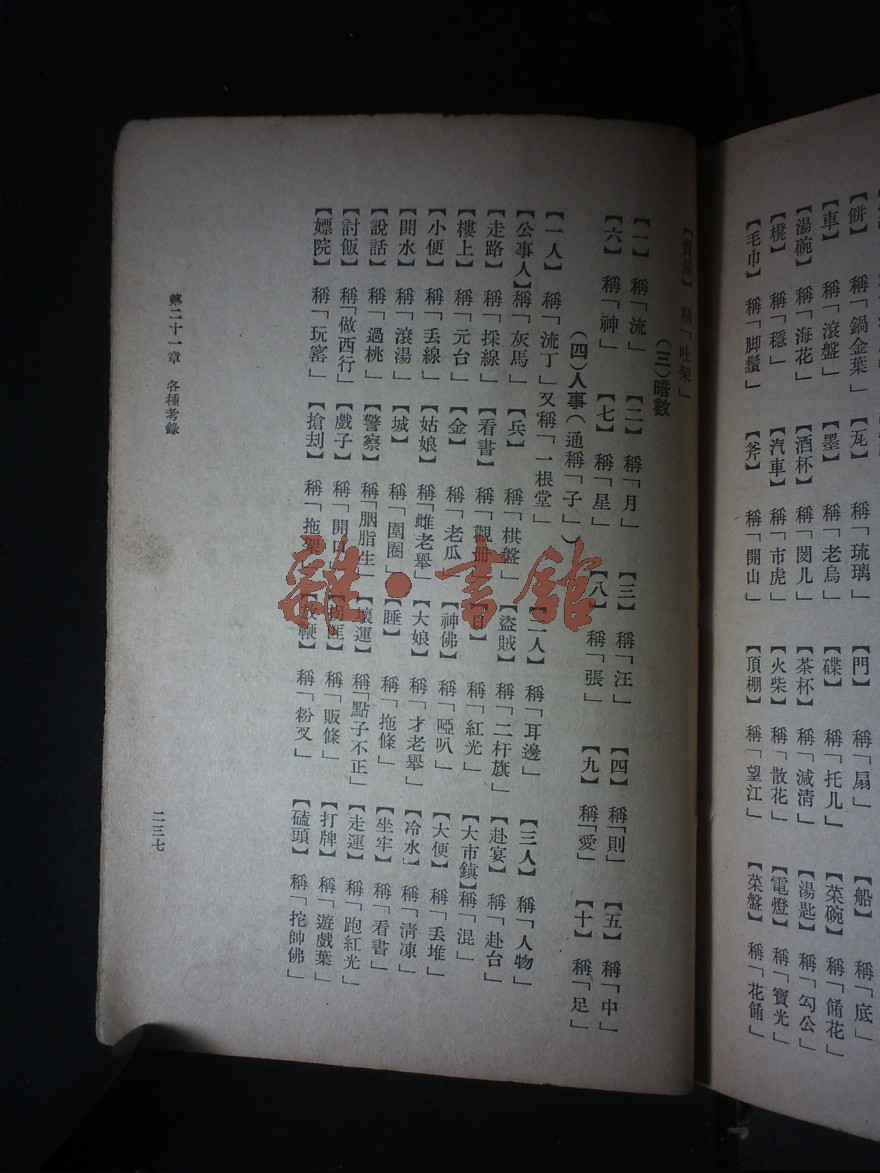 【餅】 稱「鍋金葉」 【瓦】 稱「琉璃」 【門】 稱「扇」 【船】 稱「底」
【車】 稱「滾盤」 【墨】 稱「老烏」 【碟】 稱「托儿」 【菜碗】 稱「餚花」
【湯碗】 稱「海花」 【酒杯】 稱「閔儿」 【茶杯】 稱「減清」 【湯匙】 稱「勾公」
【櫈】 稱「穩」 【汽車】 稱「市虎」 【火柴】 稱「散花」 【電燈】 稱「寶光」
【毛巾】 稱「脚鬚」 【斧】 稱「開山」 【頂棚】 稱「望江」 【菜盤】 稱「花餚」
稱「吐架」
(三)暗數
【一】 稱「流」 【二】 稱「月」 【三】 稱「汪」 【四】 稱「則」 【五】 稱「中」
【六】 稱「神」 【七】 稱「星」 【八】 稱「張」 【九】 稱「愛」 【十】 稱「足」
(四)人事(通稱「子」)
【一人】 稱「流丁」又稱「一根堂」 【二人】 稱「耳邊」 【三人】 稱「人物」
【公事人】稱「灰馬」 【兵】 稱「棋盤」 【盜賊】 稱「二杆旗」 【赴宴】 稱「赴台」
【走路】 稱「採線」 【看書】 稱「觀册」 稱「紅光」 【大市鎮】稱「混」
【樓上】 稱「元台」 【金】 稱「老瓜」 【神佛】 稱「啞叭」 【大便】 稱「丢堆」
【小便】 稱「丢線」 【姑娘】 稱「雌老舉」 【大娘】 稱「才老舉」 【冷水】 稱「清凍」
【開水】 稱「滾湯」 【城】 稱「圍圈」 【睡】 稱「拖條」 【坐牢】 稱「看書」
【說話】 稱「過桃」 【警察】 稱「胭脂生」 【壞運】 稱「點子不正」 【走運】 稱「跑紅光」
【討飯】 稱「做西行」 【戲子】 稱「開口」 稱「販條」 【打牌】 稱「遊戲葉」
【嫖院】 稱「玩窰」 【搶刦】 稱「拖架」 【放鞭】 稱「粉叉」 【磕頭】 稱「拕帥佛」
第二十一章 各種考錄
二三七
雜·書館